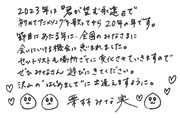 2023年は"君が望む永遠"で
初めてメインソングを歌ってから20年の年です。
節目にあたる年に、全国のみなさまに
会いにいける機会に恵まれました。
セットリストも場所ごとに変化させていきますので
ぜひみなさん 遊びにきてください。
沢山の"はじめまして"に出逢えますように。